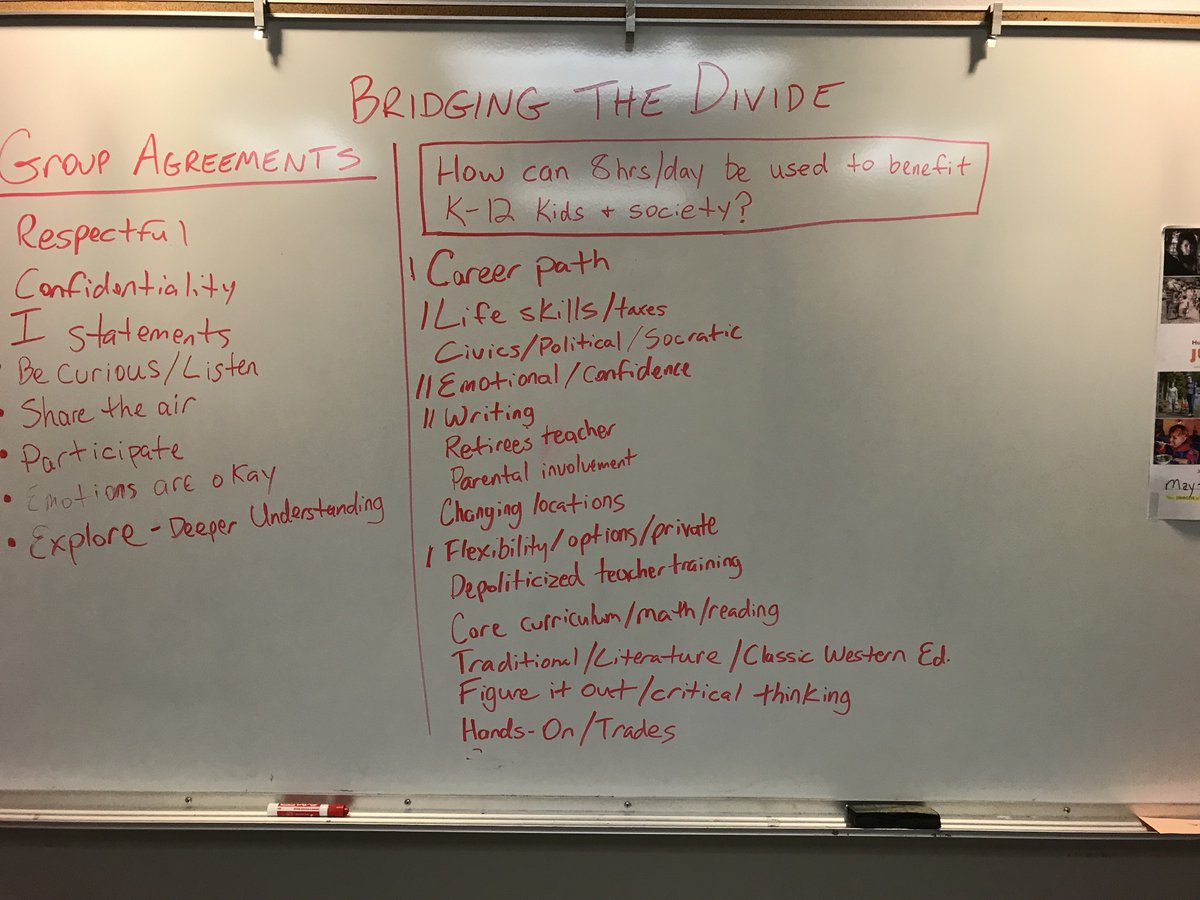 BRIDGING THE DIVIDE
GROUP AGREEMENTS
Respectful
Confidentiality
I statements
Be curious/Listen
• Share the air
• Participate
• Emotions are okay
• Explore - Deeper Understanding
How can 8hrs/day be used to benefit
K-12 Kids + society?
| Career path
| Life skills/taxes
Civics/Political/Socratic
|| Emotional/Confidence
|| Writing
Retirees teacher
Parental involvement
Changing locations
| Flexibility/options/private
Depoliticized teacher training
Core curriculum/math/reading
Traditional/Literature/Classic Western Ed.
Figure it out/critical thinking
Hands-On/Trades
May